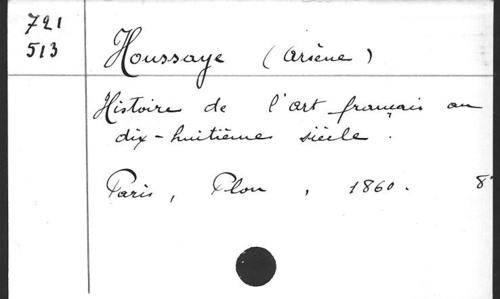 721
513
Houssaye (Arsène)
Histoire de l'art français au
dix-huitième siècle.
Paris, Plon, 1860. 8°